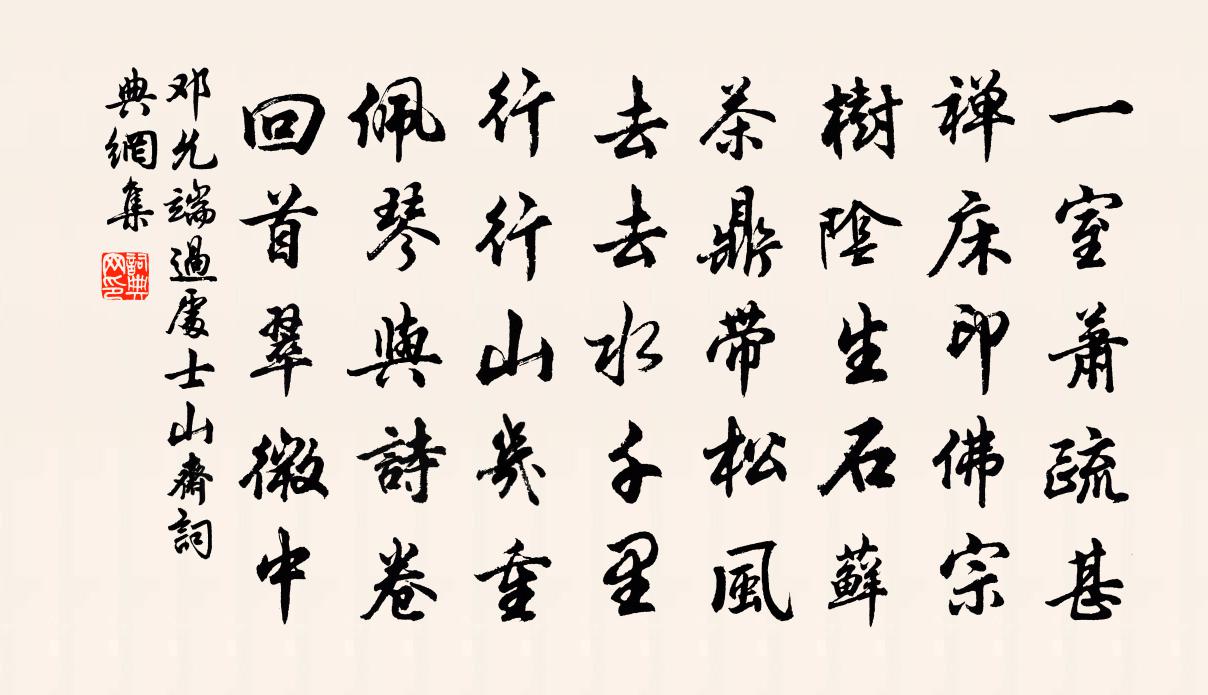 一室萧疏甚
禅床印佛宗
樹陰生石蘚
茶鼎带松風
去去水千里
行行山幾重
佩琴與詩卷
回首翠微中
邓允端過處士山齋詞
典網集
詞典
网印